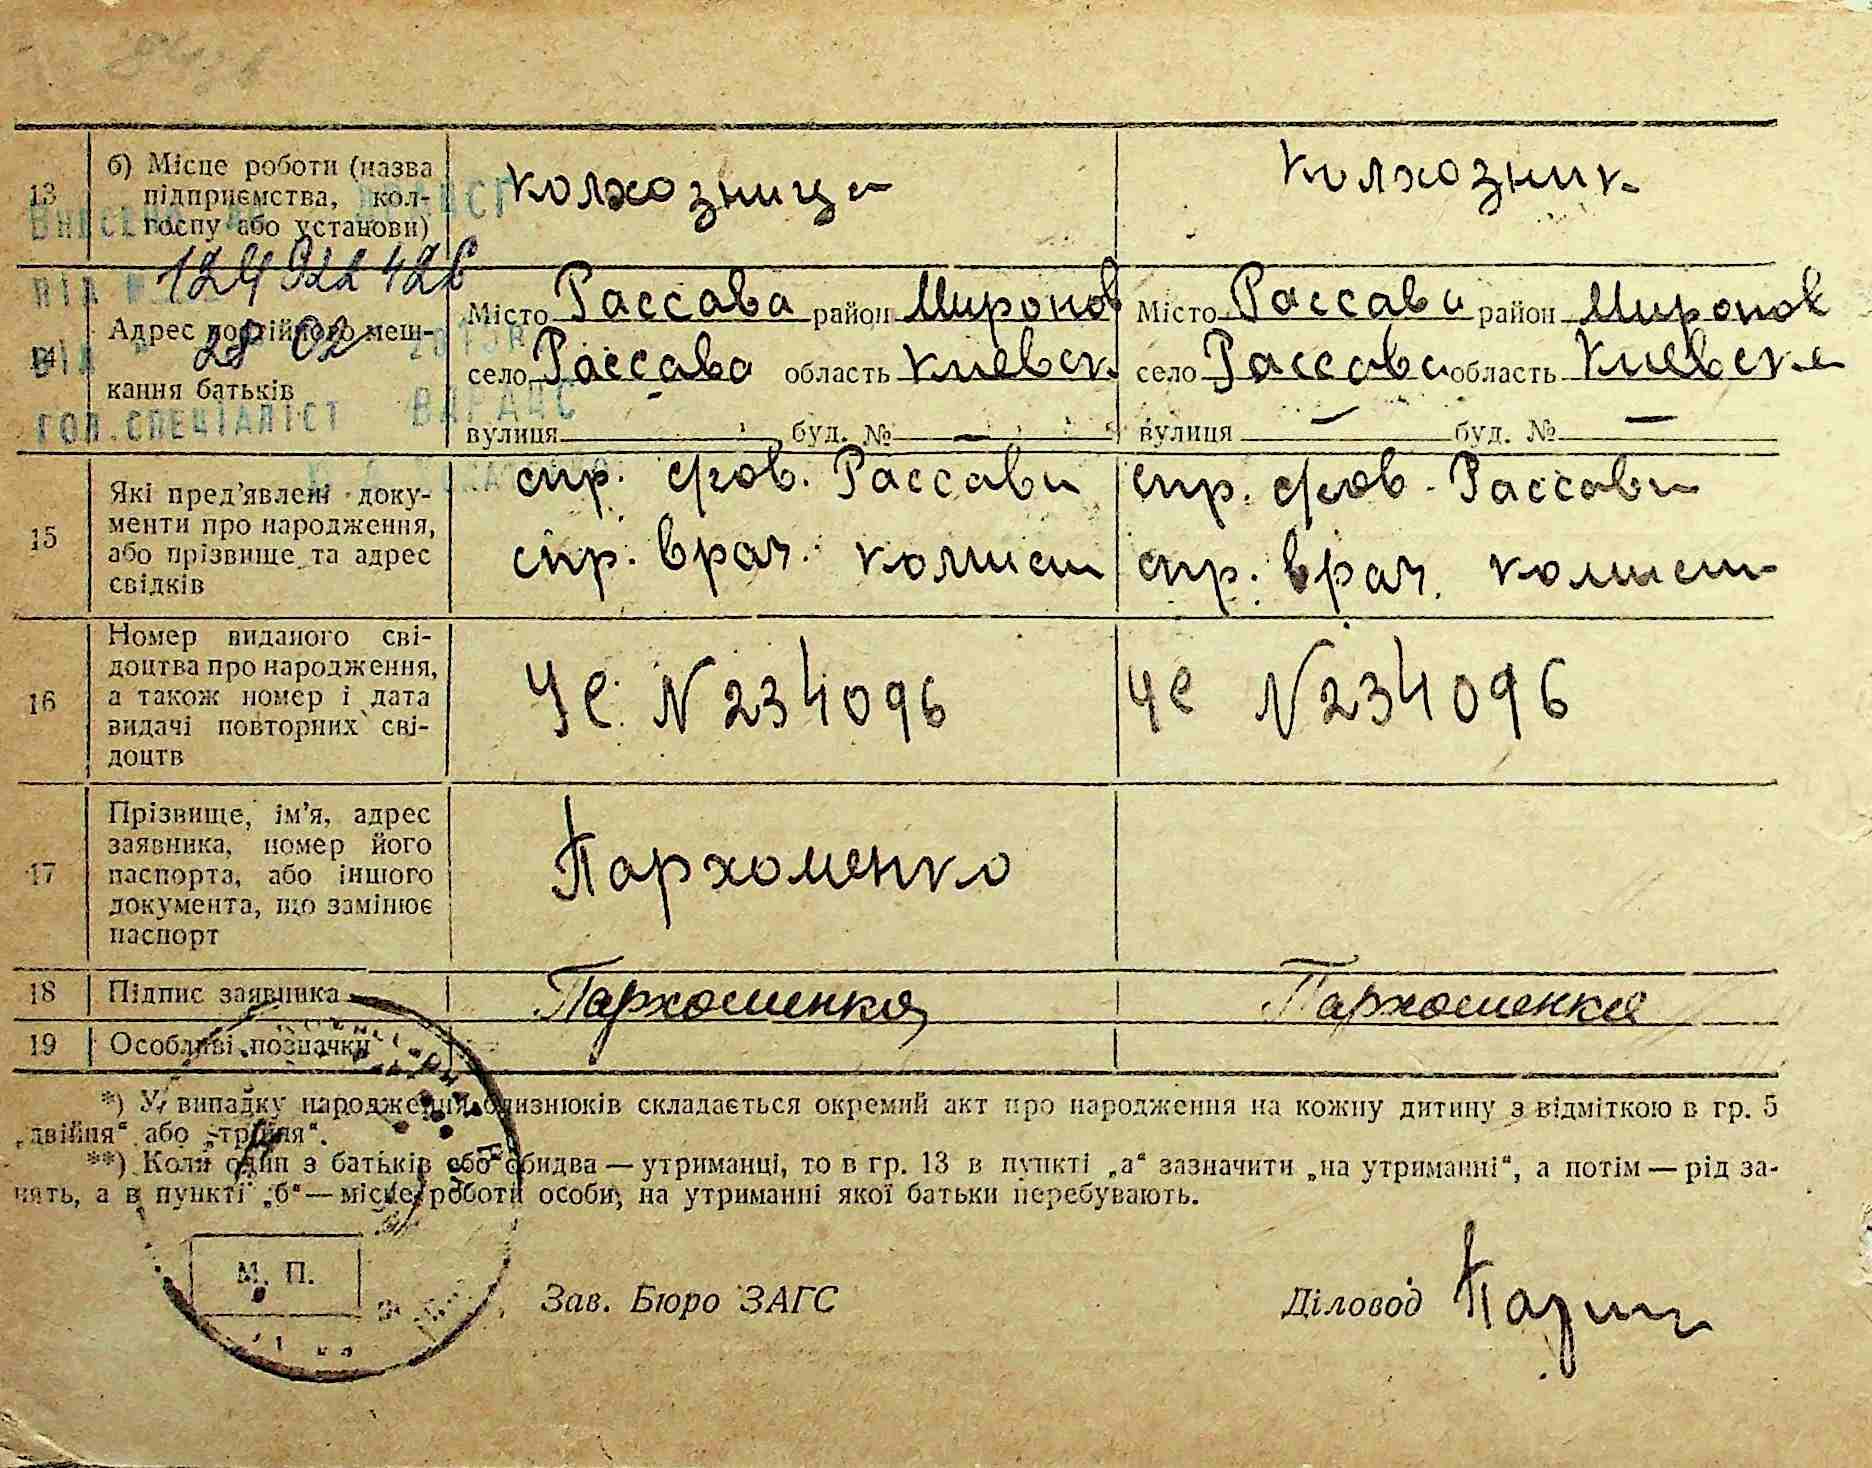 13 б) Місце роботи (назва підприємства, колгоспу або установи) колхозница колхозник
124 922 426
28 02
14 Адрес постійного мешкання батьків
Місто Рассава район Миронов Місто Рассава район Миронов
село Рассава область Киевск. село Рассава область Киевск
вулиця буд. № – вулиця – буд. № –
ГОЛ. СПЕЦІАЛІСТ ВДРАЦС
15 Які пред'явлені документи про народження, або прізвище та адрес свідків
спр. Рассави спр. Рассави
спр. врач. спр. врач.
16 Номер виданого свідоцтва про народження, а також номер і дата видачі повторних свідоцтв
ЧС N 234096 ЧС N 234096
17 Прізвище, ім'я, адрес заявника, номер його паспорта, або іншого документа, що замінює паспорт
Пархоменко
18 Підпис заявника Пархоменко Пархоменко
19 Особливі позначки
*) У випадку народження близнюків складається окремий акт про народження на кожну дитину з відміткою в гр. 5
„двійня“ або „трійня“.
**) Коли один з батьків або обидва — утриманці, то в гр. 13 в пункті „а“ зазначити „на утриманні“, а потім — рід за-
нять, а в пункті „б“ — місце роботи особи, на утриманні якої батьки перебувають.
М. П.
Зав. Бюро ЗАГС Діловод